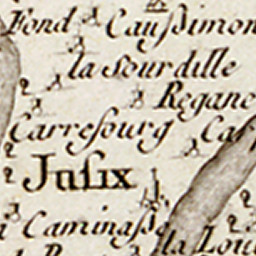 Fond Caussimon
la Sourdille
Regane
Carrefourg Cas
Jusix
Caminasse
la Lou